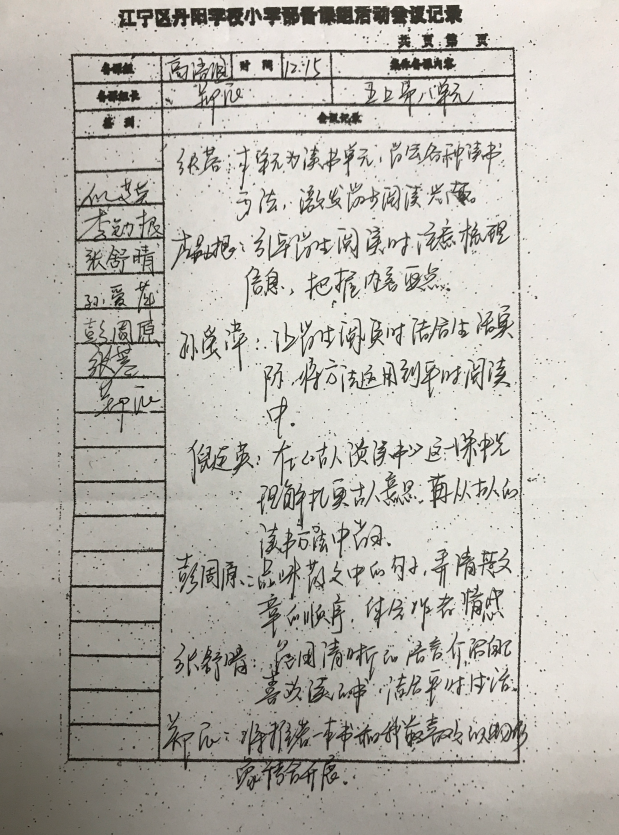 江宁区丹阳学校小学部备课组活动会议记录
共 页 第 页
备课组 高语组 时间 12.15 集体备课内容
备课组长 郑 五上第八单元
签到 会议记录
张蓉：本单元为读书单元，学会各种读书
方法，激发学生阅读兴趣。
李勤根：引导学生阅读时注意梳理
信息，把握内容要点。
张舒晴
孙爱萍
彭周原
张蓉
孙爱萍：让学生阅读时结合生活实
际，将方法运用到平时阅读
中。
在《古人谈读书》这一课中先
理解扎实古人意思，再从古人的
读书方法中学习。
彭周原：品味散文中的句子，弄清散文
章的顺序，体会作者情感
张舒晴：运用清晰的语言介绍自己
喜欢读的书，结合平时生活。
郑：将推荐一本书和我最喜欢的人物形
象结合开展。